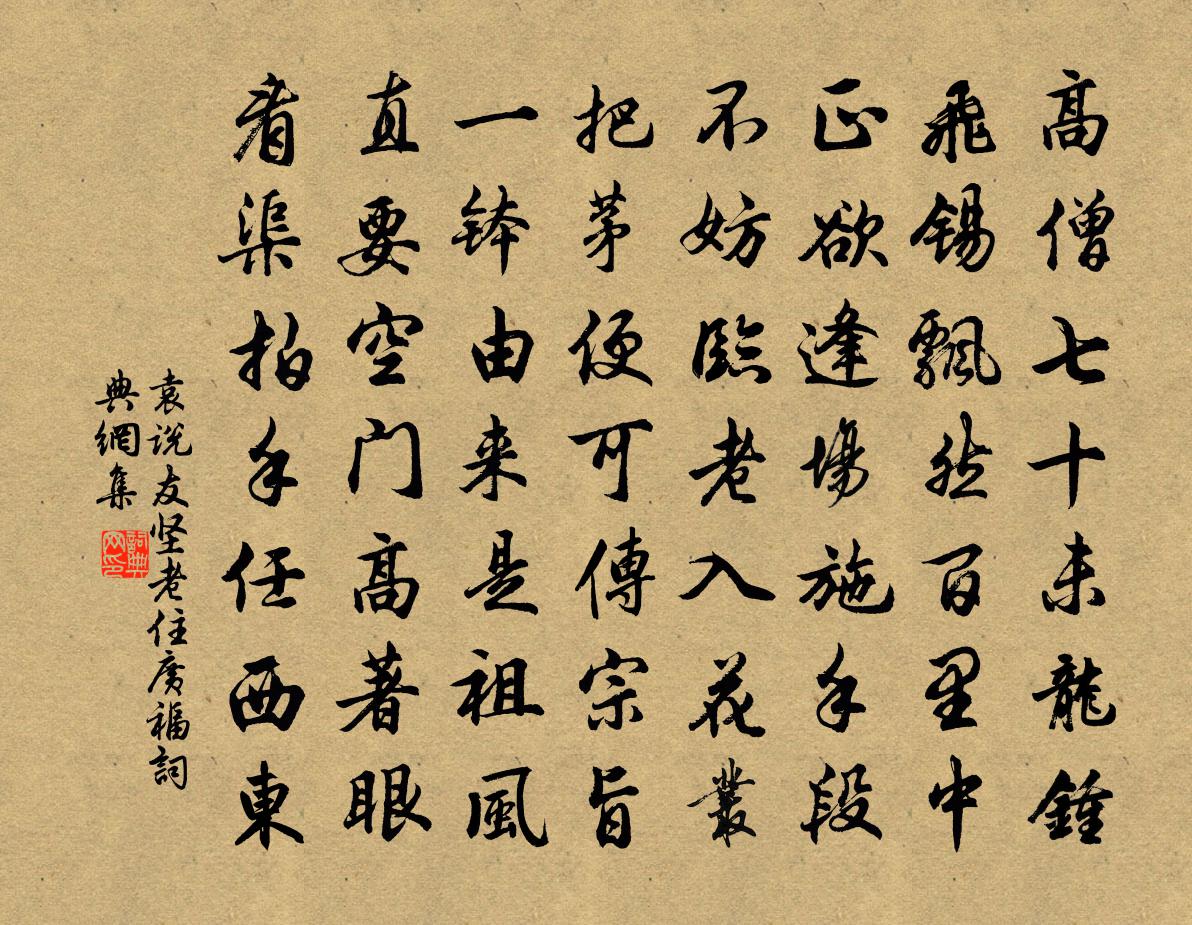 高僧七十未龍鍾
飛錫飄然百里中
正欲逢場施手段
不妨臨老入花叢
把茅便可傳宗旨
一鉢由来是祖風
直要空门高著眼
看渠拍手任西東
袁说友坚老住廣福詞
典網集
詞典
网印